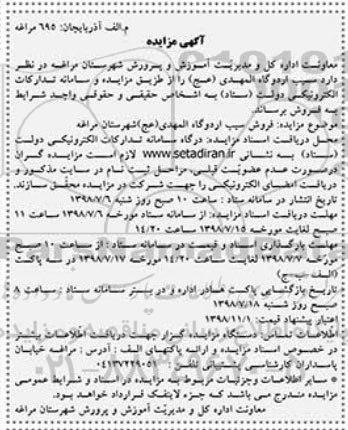 م.الف آذربایجان: ۶۹۵ مراغه
آگهی مزایده
معاونت اداره کل و مدیریت آموزش و پرورش شهرستان مراغه در نظر
دارد سیب اردوگاه المهدی (عج) را از طریق مزایده و سامانه تدارکات
الکترونیکی دولت (ستاد) به اشخاص حقیقی و حقوقی واجد شرایط
به فروش برساند.
موضوع مزایده: فروش سیب اردوگاه المهدی(عج)شهرستان مراغه
محل دریافت اسناد مزایده: درگاه سامانه تدارکات الکترونیکی دولت
(ستاد) به نشانی www.setadiran.ir لازم است مزایده گران
درصورت عدم عضویت قبلی، مراحل ثبت نام در سایت مذکور و
دریافت امضای الکترونیکی را جهت شرکت در مزایده محقق سازند.
تاریخ انتشار در سامانه ستاد : ساعت ۱۰ صبح روز شنبه ۱۳۹۸/۷/۶
مهلت دریافت اسناد مزایده: از سامانه ستاد مورخه ۱۳۹۸/۷/۶ ساعت ۱۱
صبح لغایت مورخه ۱۳۹۸/۷/۱۵ ساعت ۱۴/۲۰
مهلت بارگذاری اسناد و قیمت در سامانه ستاد : از ساعت ۱۰ صبح
مورخه ۱۳۹۸/۷/۷ لغایت ساعت ۱۴/۲۰ مورخه ۱۳۹۸/۷/۱۷ در سه پاکت
(الف -ب-ج)
تاریخ بازگشایی پاکت ها:در اداره و در بستر سامانه ستاد : ساعت ۸
صبح روز شنبه ۱۳۹۸/۷/۱۸
اعتبار پیشنهاد قیمت: ۱۳۹۸/۱۱/۱
اطلاعات تماس: دستگاه مزایده گزار جهت دریافت اطلاعات بیشتر
در خصوص اسناد مزایده و ارائه پاکتهای الف : آدرس : مراغه خیابان
پاسداران کارشناسی پشتیبانی تلفن : ۰۴۱۳۷۲۲۹۰۵۱
* سایر اطلاعات وجزئیات مربوط به مزایده در اسناد و شرایط عمومی
مزایده مندرج می باشد که جزء لاینفک قرارداد خواهد بود.
معاونت اداره کل و مدیریت آموزش و پرورش شهرستان مراغه